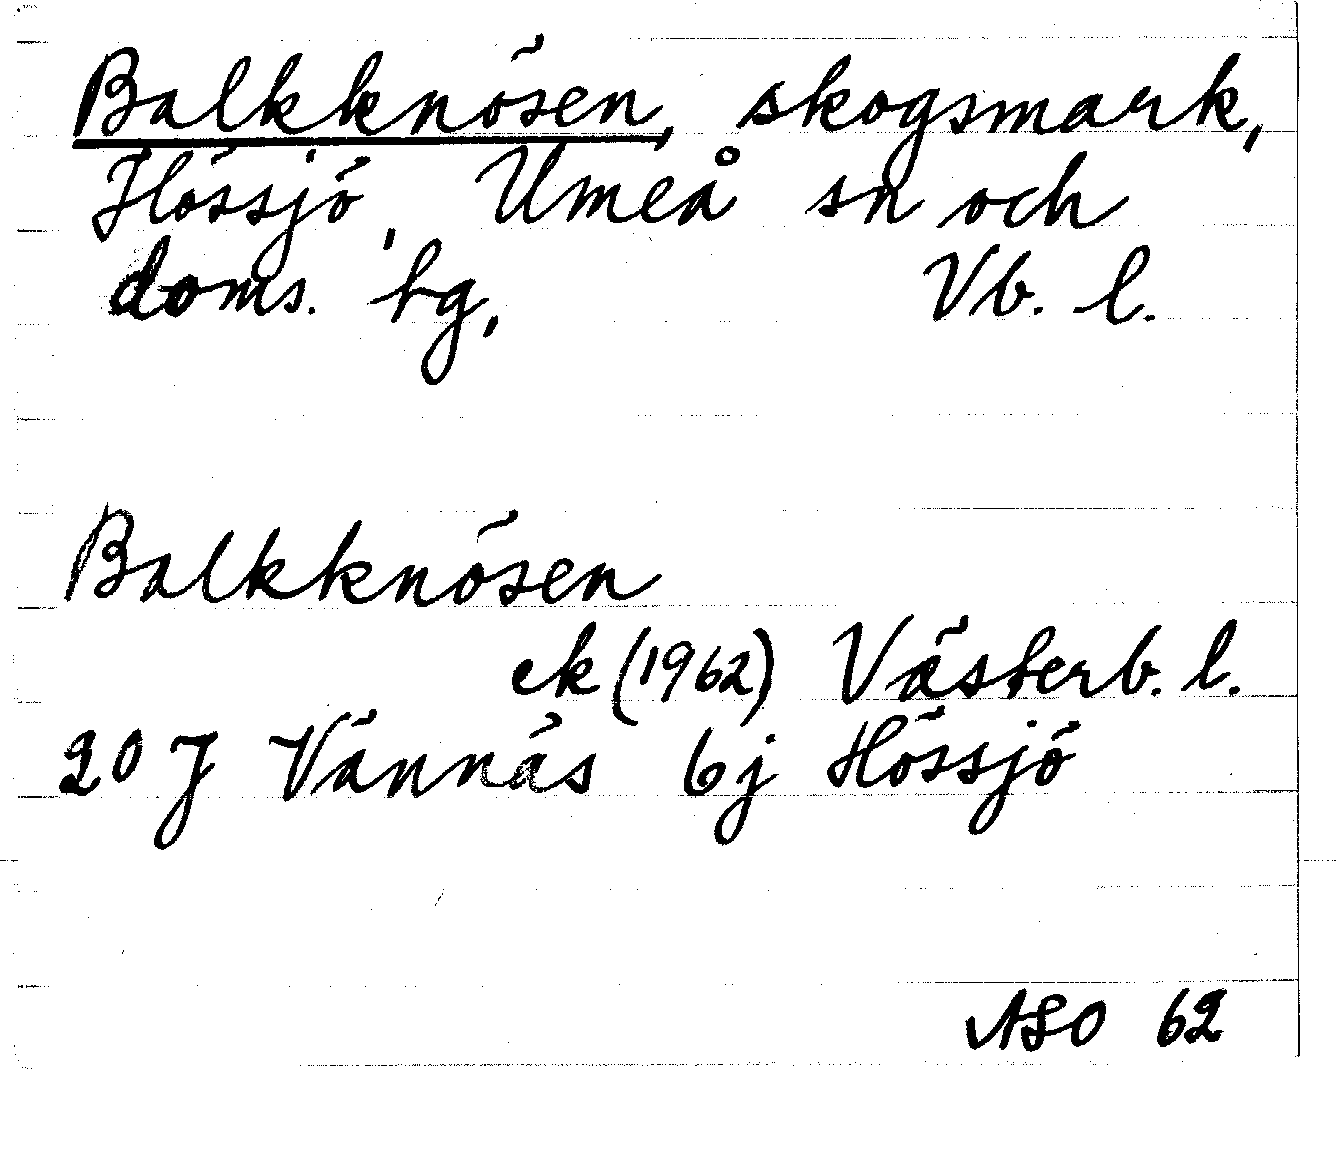 Balkknösen, skogsmark,
Hössjö, Umeå sn och
doms. tg, Vb. l.
Balkknösen
ek (1962) Västerb. l.
20 J Vännäs bj Hössjö
ASO 62